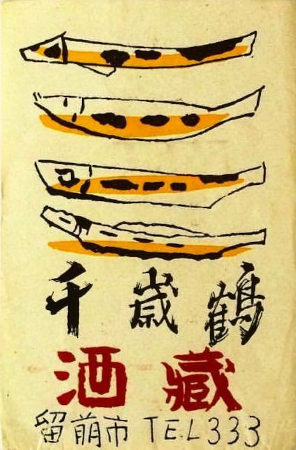 千歳鶴
酒藏
留萠市 TEL 333